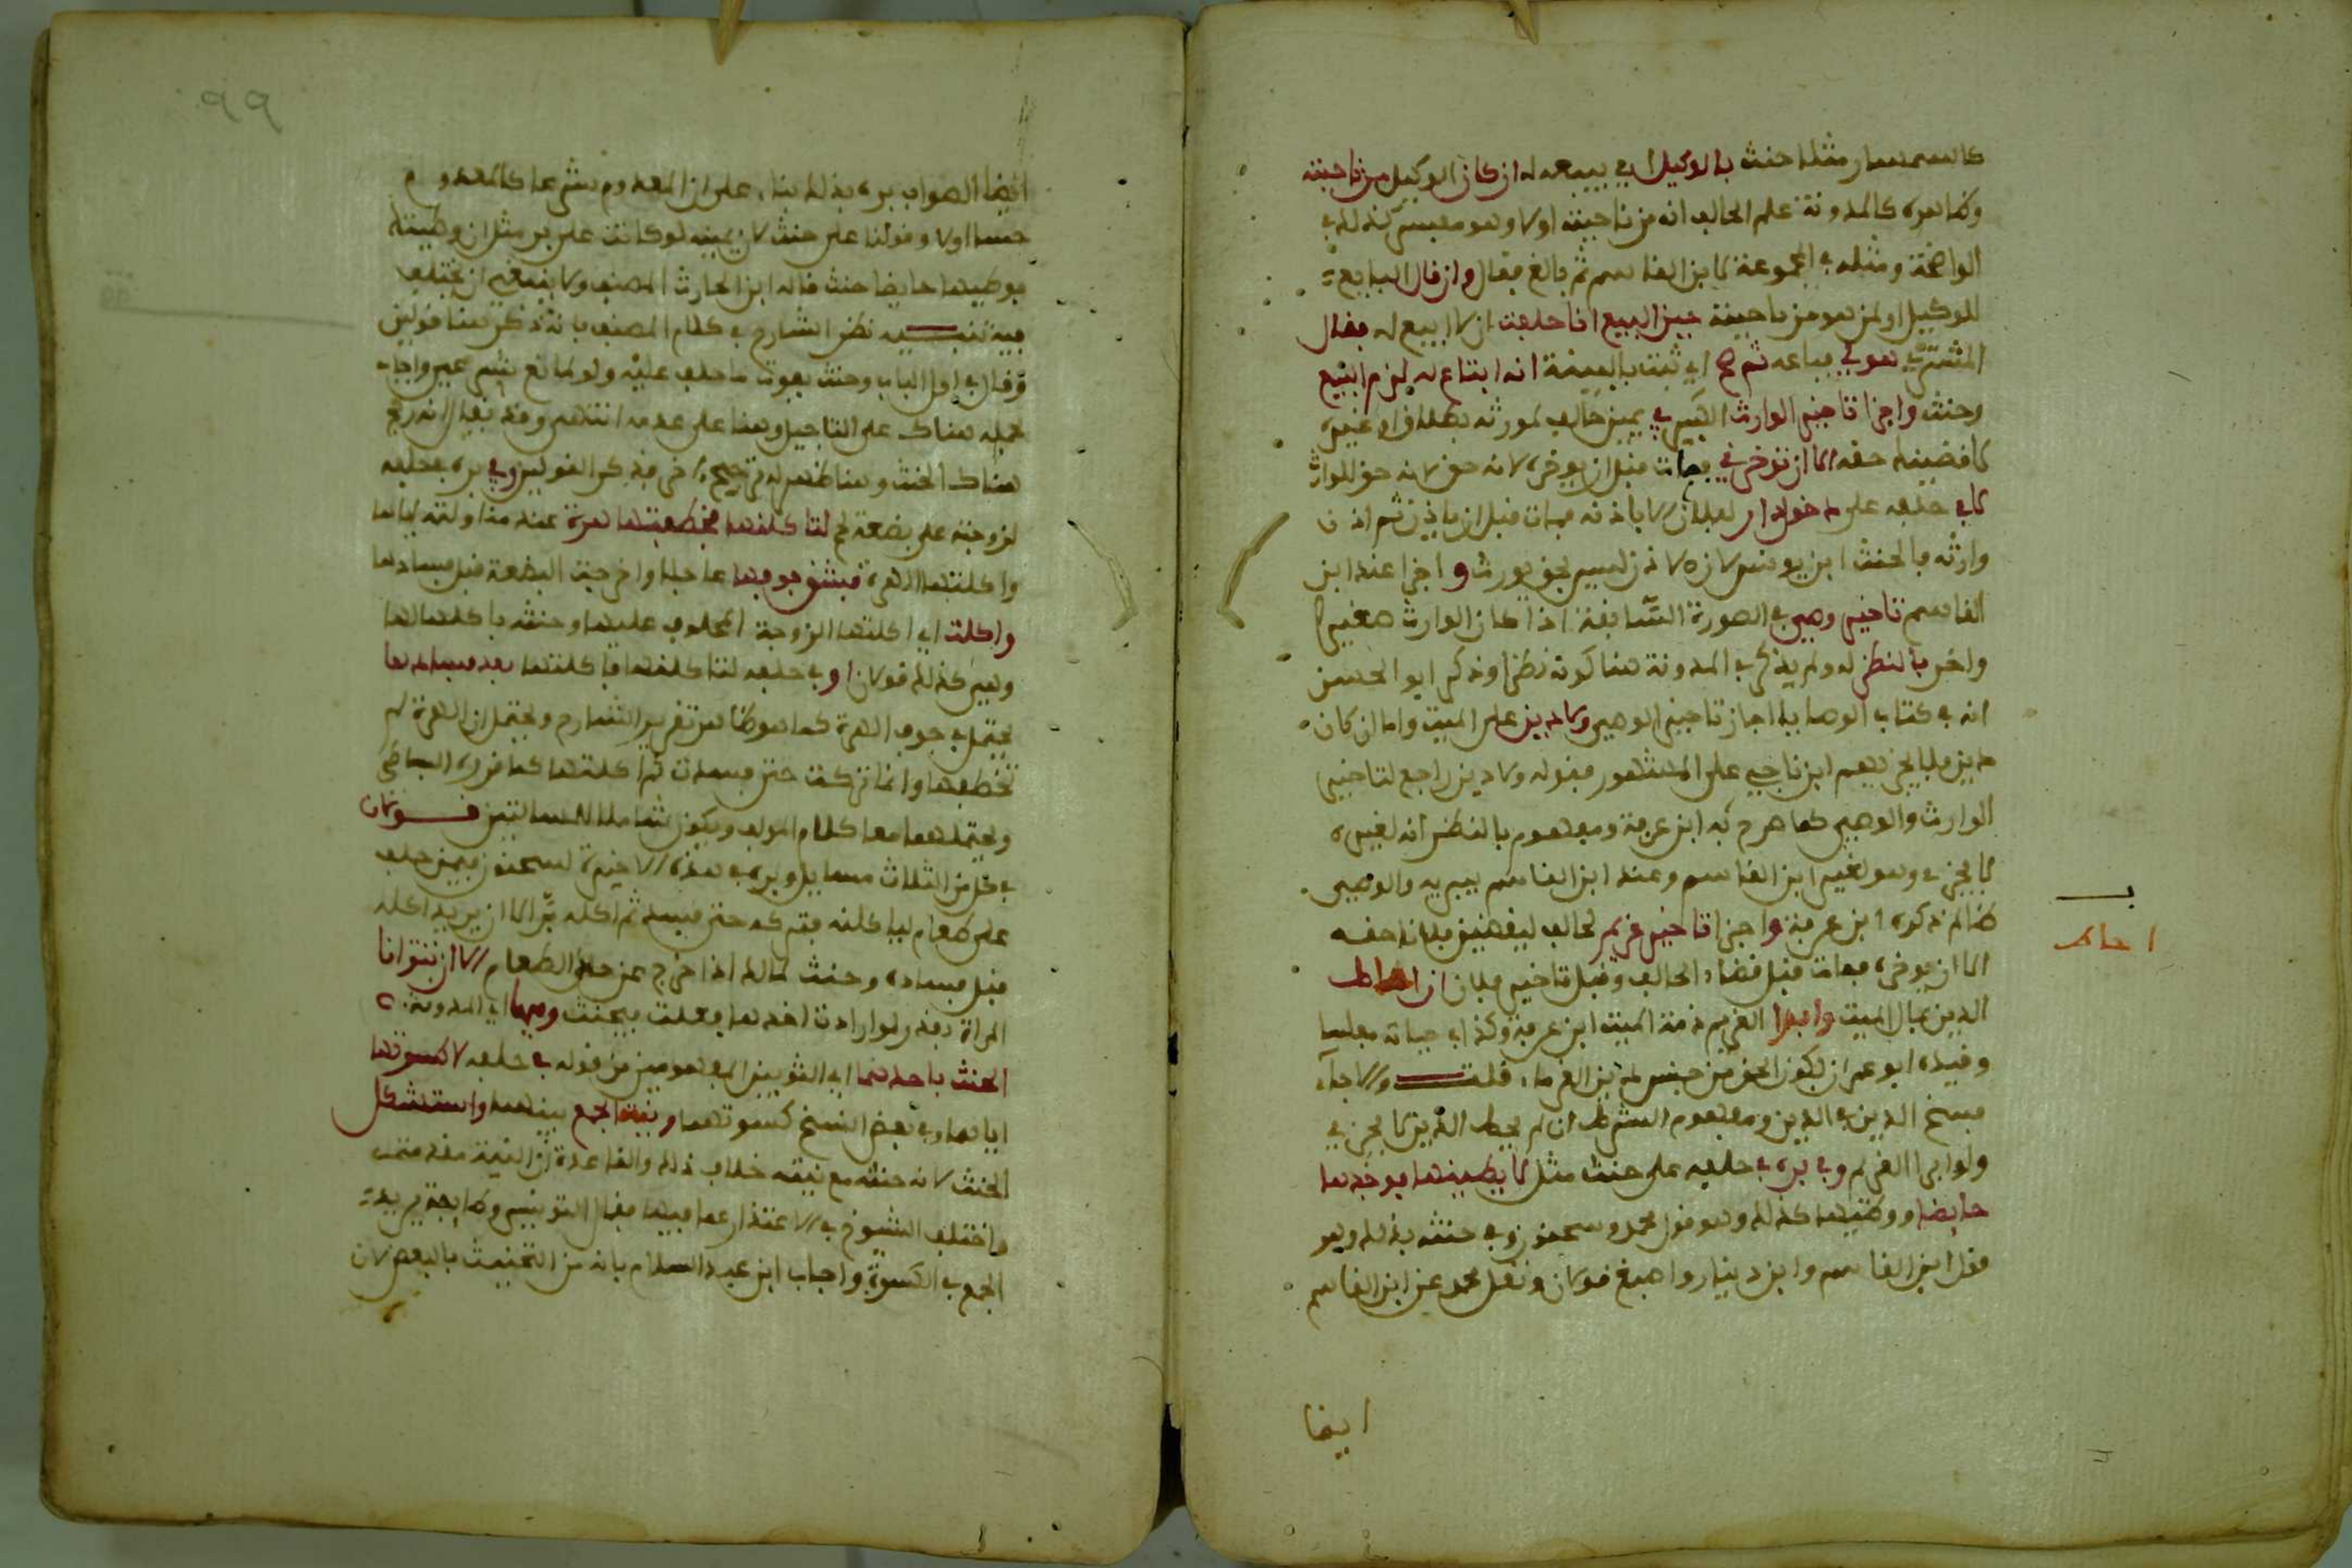 كالسمسار مثلا حنث بالوكيل اي ببيعه له ان كان الوكيل من ناحيته
وظاهره كالمدونة علم الحالف انه من ناحيته اولا وهو مفسر كذلك في
الواضحة ومثله في المجموعة لابن القاسم ثم بالغ فقال وان قال البايع
للوكيل او لمن هو من ناحيته حين البيع انا حلفت ان لا ابيع له فقال
المشتري هو لي فباعه ثم صح اي ثبت بالبينة انه ابتاع له لزم البيع
وحنث واجزا تاخير الوارث الكبير في يمين حالف لمورثه بطلاق او غيره
لاقضينك حقك الا ان توخرني فمات قبل ان يوخره لانه حق لانه حق للوارث
لا في حلفه على دخول دار لفلان الا باذنه فمات قبل ان ياذن ثم اذن
وارثه فالحنث ابن يونس لان الاذن ليس بحق يورث و اجزا عند ابن
القاسم تاخير وصي في الصورة السابقة اذا كان الوارث صغيرا
واخر بالنظر له ولم يذكر في المدونة هنا كونه نظرا وذكر ابو الحسن
انه في كتاب الوصايا اجاز تاخير الوصي ولا دين على الميت واما ان كان
دين فلا يجزيهم ابن ناجي على المشهور فقوله ولا دين راجع لتاخير
الوارث والوصي كما صرح به ابن عرفة ومفهوم بالنظر انه لغيره
لا يجزي وهو لغير ابن القاسم وعند ابن القاسم يبر به والوصي
ظالم ذكره ابن عرفة واجزا تاخير غريم لحالف ليقضين فلانا حقه
الا ان يوخره فمات قبل قضاء الحالف وقبل تاخير فلان ان احاط
الدين بمال الميت وابرا الغريم ذمة الميت ابن عرفة وكذا في حياته مفلسا
وقيده ابو عمران بكون الحق من جنس دين الغرماء قلت والا جاء
فسخ الدين في الدين ومفهوم الشرط ان لم يحط الدين لا يجزي
ولو ابرا الغريم وفي بره في حلفه على حنث مثل لا يطينها فوجدها
حايضا ووطيها كذلك وهو قول محمد وسحنون وفي حنثه بذلك وهو
نقل ابن القاسم وابن دينار واصبغ قولان ونقل محمد عن ابن القاسم
ايضا
احاط
٩٩
ايضا الصواب بره بذلك بناء على ان المعدوم شرعا كالمعدوم
حسا اولا وقولنا على حنث لان يمينه لو كانت على بر مثل ان وطيتك
فوطيها حايضا حنث قاله ابن الحارث المصنف ولا ينبغي ان يختلف
فيه تنبيه نظر الشارح في كلام المصنف بانه ذكر هنا قولين
وقال في اول الباب وحنث بفوت ما حلف عليه ولو لمانع شرعي واجاب
بحمله هناك على التاجيل وهنا على عدمه انتهى وقد يقال انه رجح
هناك الحنث وهنا ظهر له ترجيح اخر فذكر القولين وفي بره في حلفه
لزوجته على بضعة لحم لتاكلنها فخطفتها هرة عند مناولته اياها
واكلتها الهرة فشق جوفها عاجلا واخرجت البضعة قبل فسادها
واكلت اي اكلتها الزوجة المحلوف عليها وحنثه باكلها لها
وهي كذلك قولان او في حلفه لتاكلنها فاكلتها بعد فسادها
يحتمل في جوف الهرة كما هو ظاهر تقرير الشارح ويحتمل ان الهرة لم
تخطفها وانما تركت حتى فسدت ثم اكلتها كما قرره البساطي
ويحتملهما معا كلام المولف ويكون شاملا للمسالتين قولان
في كل من الثلاث مسايل وبره في هذه الاخيرة لسحنون فيمن حلف
على طعام لياكلنه فتركه حتى فسد ثم اكله بر الا ان يريد اكله
قبل فساده وحنث لمالك اذا خرج عن حد الطعام الا ان تتوانا
المراة بقدر لو ارادت اخذها فعلت فيحنث وفيها اي المدونة
الحنث باحدهما اي الثوبين المفهومين من قوله في حلفه لا كسوتها
اياهما وفي بعض النسخ كسوتهما ونيته الجمع بينهما واستشكل
الحنث لانه حنثه مع نيته خلاف ذلك والقاعدة ان النية مقدمة
واختلف الشيوخ في الاعتذار عما فيها فقال التونسي ولا بعد يريد
الجمع في الكسوة واجاب ابن عبد السلام بانه من التحنيث بالبعض لان